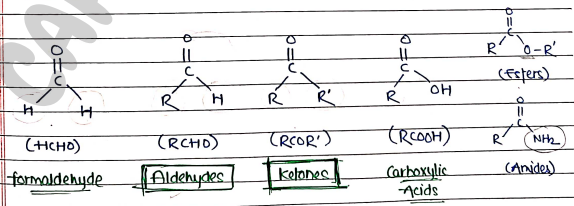 O
C
H H
(HCHO)
formaldehyde
O
C
R H
(RCHO)
Aldehydes
O
C
R R'
(RCOR')
Ketones
O
C
R OH
(RCOOH)
Carboxylic
Acids
O
C
R O-R'
(Esters)
O
C
R NH₂
(Amides)